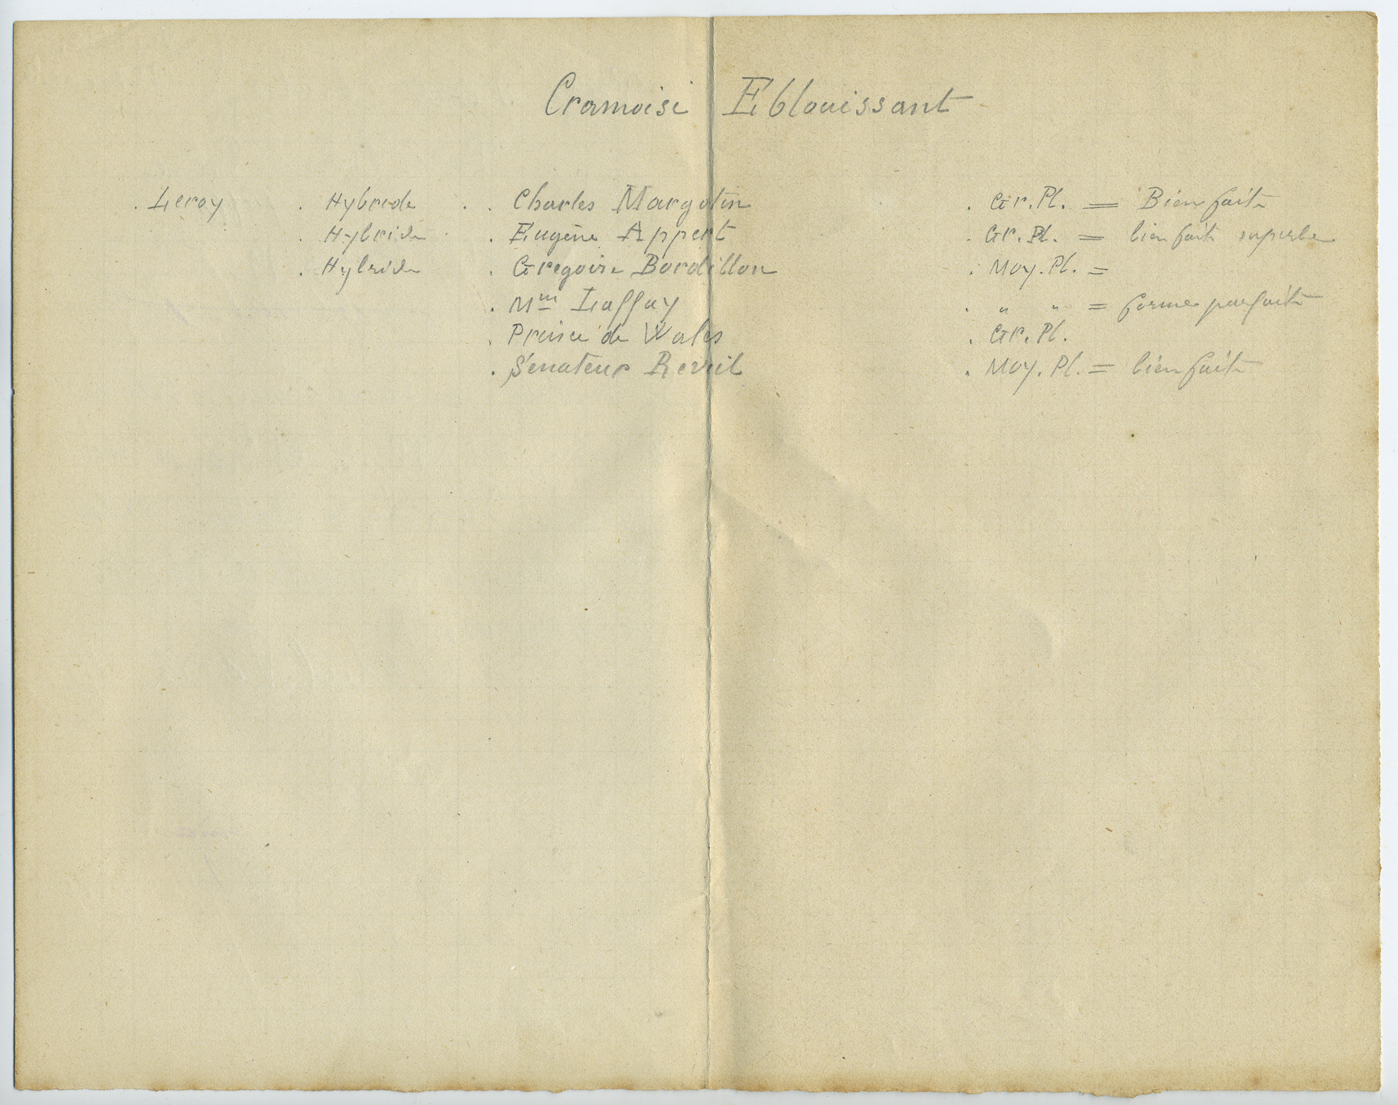 Cramoisi Eblouissant
. Leroy . Hybride . . Charles Margotin . Gr. Pl. = Bien faite
. Hybride . . Eugène Appert . Gr. Pl. = bien faite superbe
. Hybride . Gregoire Bordillon . Moy. Pl. =
. Mme Laffay . " " = forme parfaite
. Prince de Wales . Gr. Pl.
. Sénateur Reveil . Moy. Pl. = bien faite